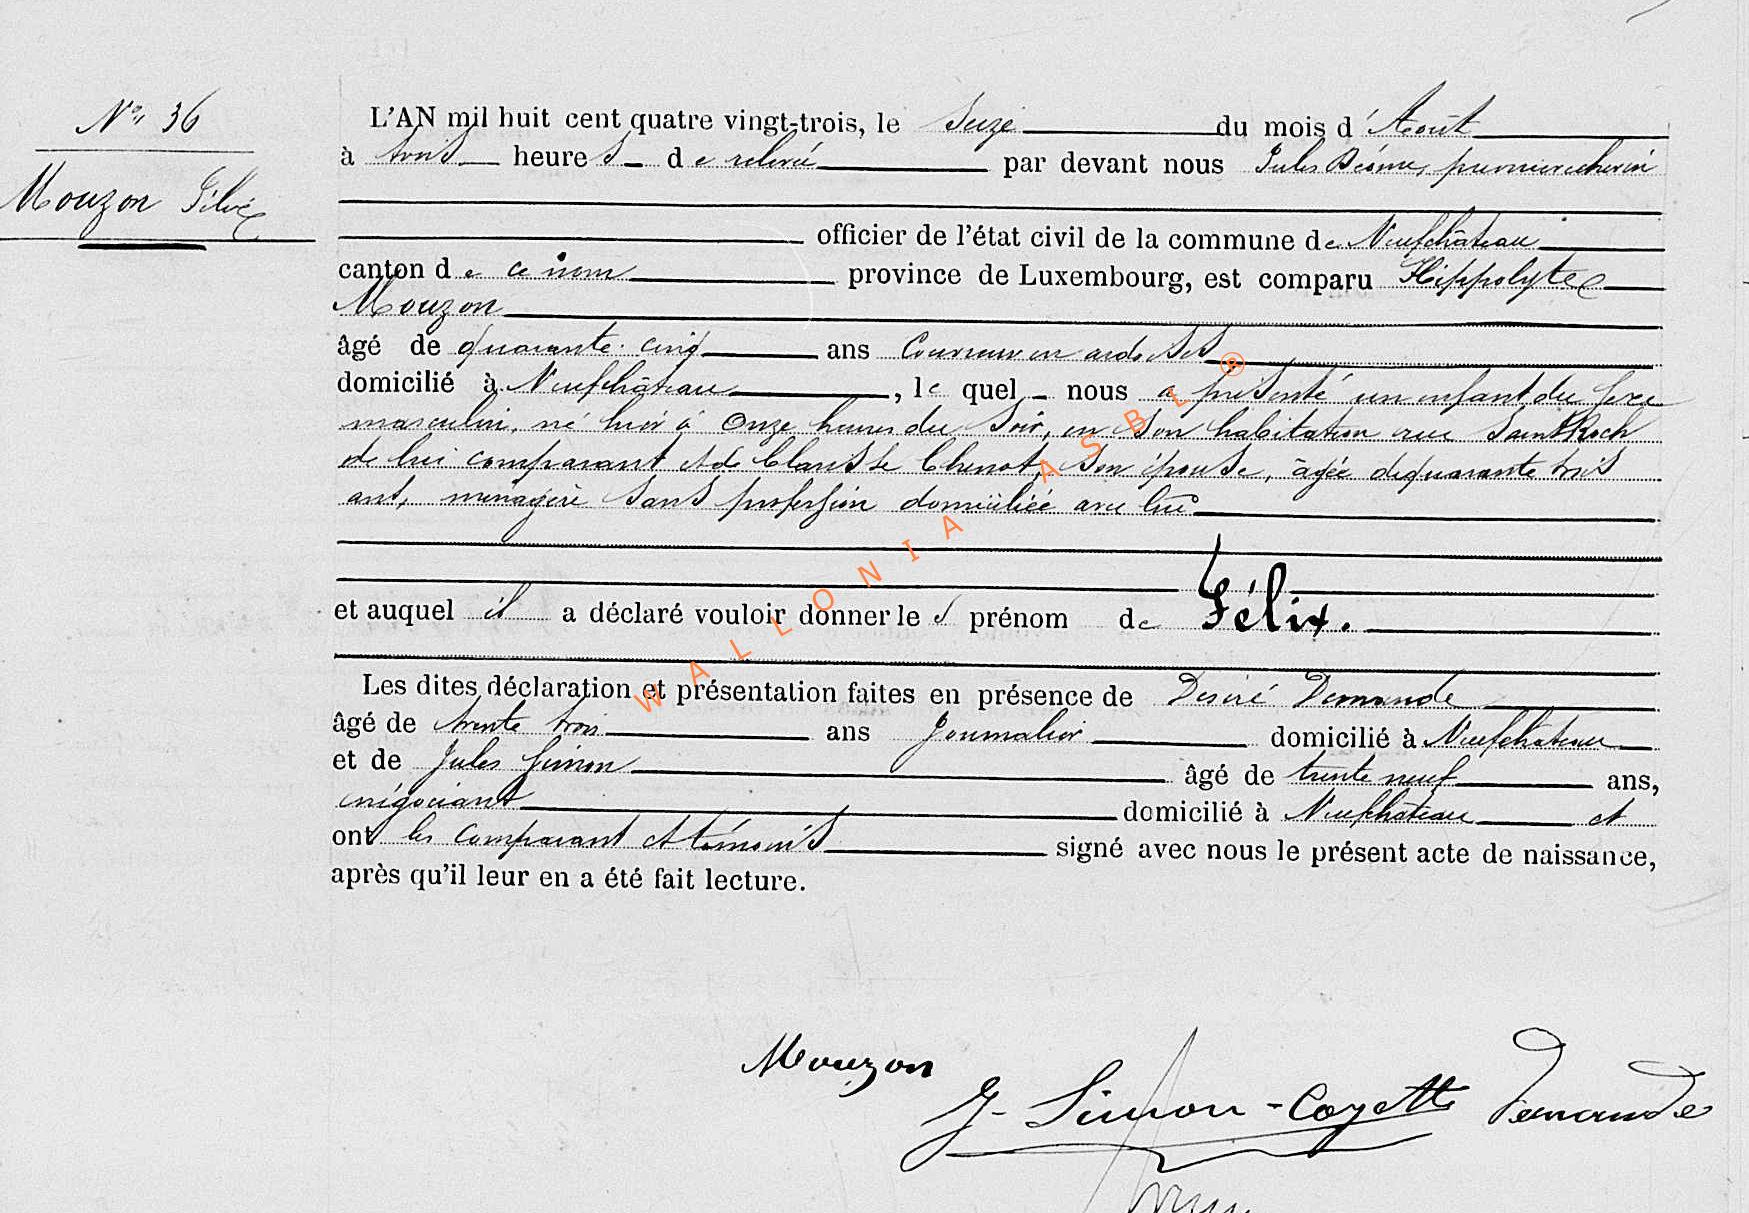 N° 36
Mouzon Félix
L'AN mil huit cent quatre vingt-trois, le Seize du mois d'Août
à trois heures de relevée par devant nous Jules premier échevin
officier de l'état civil de la commune de Neufchâteau
canton de ce nom province de Luxembourg, est comparu Hippolyte
Mouzon
âgé de quarante-cinq ans Couvreur en ardoises
domicilié à Neufchâteau, le quel nous a présenté un enfant du sexe
masculin, né hier à Onze heures du Soir, en Son habitation rue Saint Roch
de lui comparant et de Clarisse Chenot, Son épouse, âgée de quarante trois
ans, ménagère Sans profession domiciliée avec lui
et auquel il a déclaré vouloir donner le S prénom de Félix.
Les dites déclaration et présentation faites en présence de Désiré Demande
âgé de trente trois ans Journalier domicilié à Neufchâteau
et de Jules Simon âgé de trente neuf ans,
négociant domicilié à Neufchâteau et
ont les comparant et témoins signé avec nous le présent acte de naissance,
après qu'il leur en a été fait lecture.
Mouzon
J. Simon-Cozette Demande
WALLONIA ASBL ®